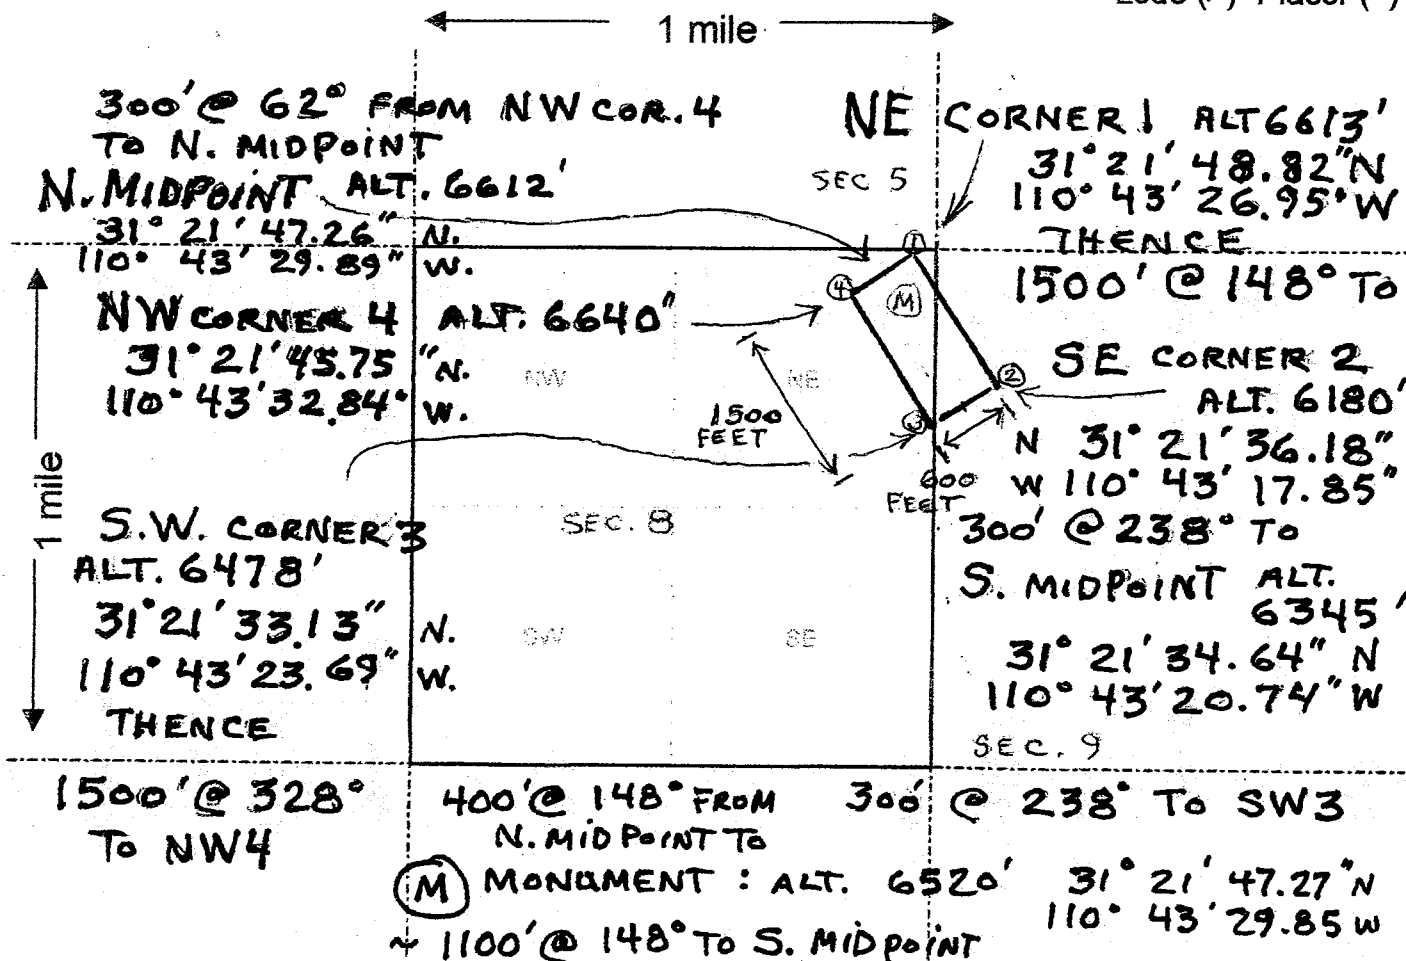 1 mile
300' @ 62° FROM NW COR. 4
TO N. MIDPOINT
N. MIDPOINT ALT. 6612'
31° 21' 47.26" N.
110° 43' 29.89" W.
NW CORNER 4 ALT. 6640"
31° 21' 45.75 "N.
110° 43' 32.84° W.
1 mile
S.W. CORNER 3
ALT. 6478'
31° 21' 33.13" N.
110° 43' 23.69" W.
THENCE
1500' @ 328°
TO NW4
SEC 5
1
4
M
2
3
NW
NE
1500
FEET
600
FEET
SEC. 8
SW
SE
NE CORNER 1 ALT 6613'
31° 21' 48.82" N
110° 43' 26.95" W
THENCE
1500' @ 148° TO
SE CORNER 2
ALT. 6180'
N 31° 21' 36.18"
W 110° 43' 17.85"
300' @ 238° TO
S. MIDPOINT ALT.
6345'
31° 21' 34.64" N
110° 43' 20.74" W
SEC. 9
300' @ 238° TO SW3
400' @ 148° FROM
N. MIDPOINT TO
M MONUMENT : ALT. 6520' 31° 21' 47.27" N
110° 43' 29.85 W
~ 1100' @ 148° TO S. MIDPOINT